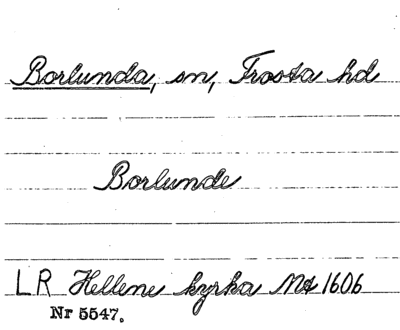 Borlunda, sn, Frosta hd
Borlunde
LR Hellene kyrka Ms 1606
Nr 5547.